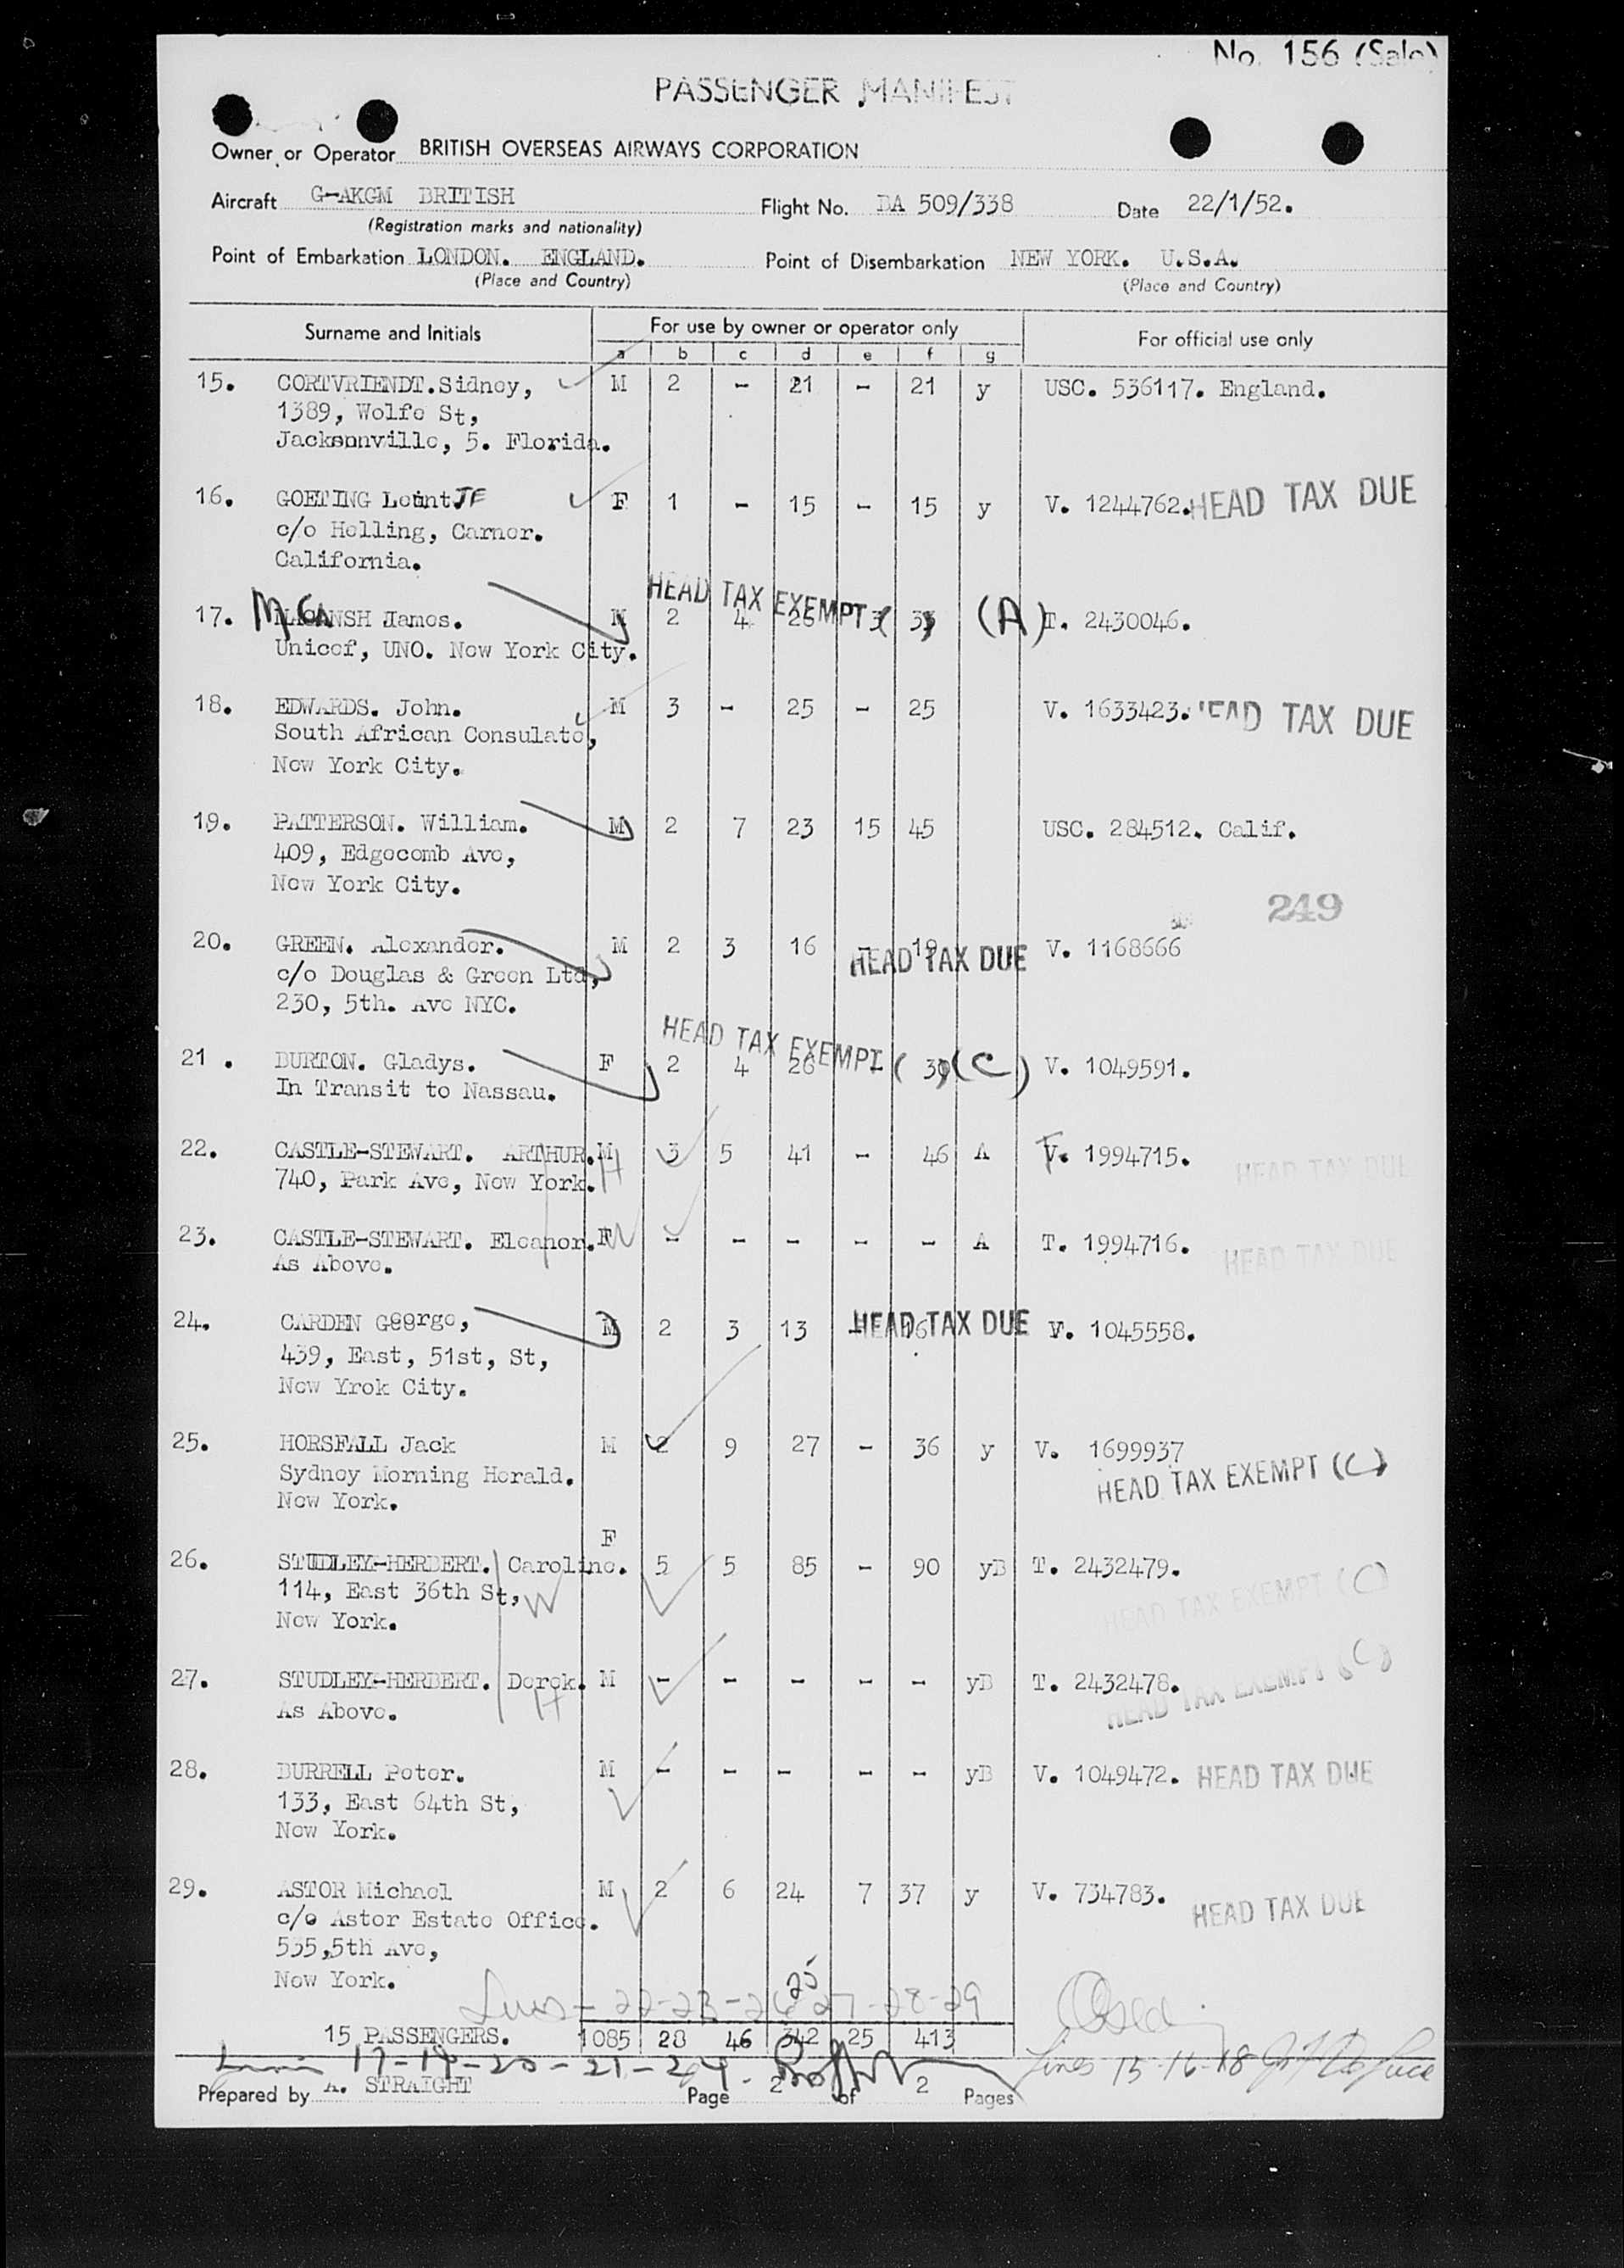 No. 156 (Sale)
PASSENGER MANIFEST
Owner or Operator BRITISH OVERSEAS AIRWAYS CORPORATION
Aircraft G-AKGM BRITISH Flight No. BA 509/338 Date 22/1/52.
(Registration marks and nationality)
Point of Embarkation LONDON. ENGLAND. Point of Disembarkation NEW YORK. U.S.A.
(Place and Country) (Place and Country)
Surname and Initials For use by owner or operator only For official use only
a b c d e f g
15. CORTVRIENDT. Sidney, M 2 - 21 - 21 y USC. 536117. England.
1389, Wolfe St,
Jacksnnville, 5. Florida.
16. GOETING LeintJE F 1 - 15 - 15 y V. 1244762. HEAD TAX DUE
c/o Helling, Carner.
California.
HEAD TAX EXEMPT
17. James. M 2 4 (A) T. 2430046.
Unicef, UNO. New York City.
18. EDWARDS. John. M 3 - 25 - 25 V. 1633423. HEAD TAX DUE
South African Consulate,
New York City.
19. PATTERSON. William. M 2 7 23 15 45 USC. 284512. Calif.
409, Edgecomb Ave,
New York City.
249
20. GREEN. Alexander. M 2 3 16 - 19 V. 1168666
HEAD TAX DUE
c/o Douglas & Green Ltd,
230, 5th. Ave NYC.
HEAD TAX EXEMPT
21 . BURTON. Gladys. F 2 4 26 (C) V. 1049591.
In Transit to Nassau.
22. CASTLE-STEWART. ARTHUR. M H 3 5 41 - 46 A T. 1994715.
740, Park Ave, New York. HEAD TAX DUE
23. CASTLE-STEWART. Eleanor. F W - - - - - A T. 1994716.
As Above. HEAD TAX DUE
24. CARDEN Geerge, M 2 3 13 - 16 HEAD TAX DUE V. 1045558.
439, East, 51st, St,
New Yrok City.
25. HORSFALL Jack M 2 9 27 - 36 y V. 1699937
Sydney Morning Herald. HEAD TAX EXEMPT (C)
New York.
F
26. STUDLEY-HERBERT. Caroline. 5 5 85 - 90 yB T. 2432479.
114, East 36th St, W HEAD TAX EXEMPT (C)
New York.
27. STUDLEY-HERBERT. Derek. M - - - - - yB T. 2432478.
As Above. H HEAD TAX EXEMPT (C)
28. BURRELL Peter. M - - - - - yB V. 1049472. HEAD TAX DUE
133, East 64th St,
New York.
29. ASTOR Michael M 2 6 24 7 37 y V. 734783.
c/o Astor Estate Office. HEAD TAX DUE
535,5th Ave,
New York.
25
Lines - 22-23-26-27-28-29
15 PASSENGERS. 1085 28 46 342 25 413
17-19-20-21-24. Lines 15-16-18
Prepared by A. STRAIGHT Page 2 of 2 Pages